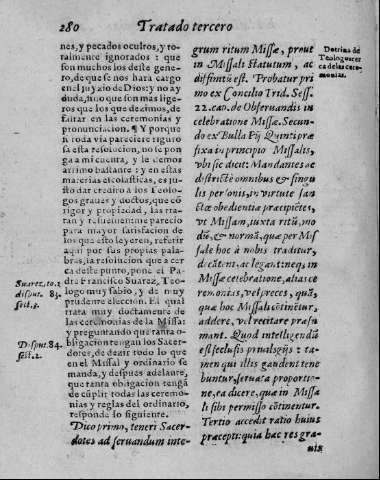 280 Tratado tercero
nes, y pecados ocultos, y to-
talmente ignorados: que
son muchos los deste gene-
ro, de que se nos hara cargo
en el juyzio de Dios: y no ay
duda, sino que son mas lige-
ros que los que dezimos, de
faltar en las ceremonias y
pronunciacion. ¶ Y porque
si toda via pareciere riguro
sa esta resolucion, no se pon
ga a mi cuenta, y le demos
arrimo bastante: y en estas
materias escolasticas, es ju-
sto dar credito a los Teolo-
gos graues y doctos, que cō
rigor y propiedad, las tra-
tan y resueluen: me parecio
para mayor satisfacion de
los que esto leyeren, referir
aqui por sus propias pala-
bras, la resolucion que a cer
ca deste punto, pone el Pa-
dre Francisco Suarez, Teo-
logo muy sabio, y de muy
prudente eleccion. El qual
trata muy doctamente de
las ceremonias de la Missa:
y preguntando que tanta o-
bligacion tengan los Sacer-
dotes, de dezir todo lo que
en el Missal y ordinario se
manda, y despues adelante,
que tanta obligacion tengā
de cūplir todas las ceremo-
nias y reglas del ordinario,
responde lo siguiente.
Dico primo, teneri Sacer-
dotes ad seruandum inte-
Suarez, to. 3
disput. 83.
sect. 3.
Disput. 84.
sect. 2.
grum ritum Missæ, prout
in Missali statutum, ac
diffinitū est. Probatur pri
mo ex Concilio Trid. Sess.
22. can. de Obseruandis in
celebratione Missæ. Secun-
do ex Bulla Pij Quinti præ
fixa in principio Missalis,
vbi sic dicit: Mandantes ac
districtè omnibus & singu
lis personis, in virtute san
ctæ obedientiæ præcipiētes,
vt Missam, iuxta ritū, mo
dū, & normā, quæ per Mis
sale hoc à nobis traditur,
decātent, ac legant: neq; in
Missæ celebratione, alias ce
remonias, vel preces, quā,
quæ hoc Missali cōtinētur,
addere, vel recitare præsu
mant. Quod intelligendū
est seclusis priuilegijs: ta-
men qui illis gaudent tene
buntur, seruata proportio-
ne, ea dicere, quæ in Missa
li sibi permisso cōtinentur.
Tertio accedit ratio huius
præcepti: quia hac res gra-
uis
Dotrina de
Teologos cer
ca de las cere-
monias.